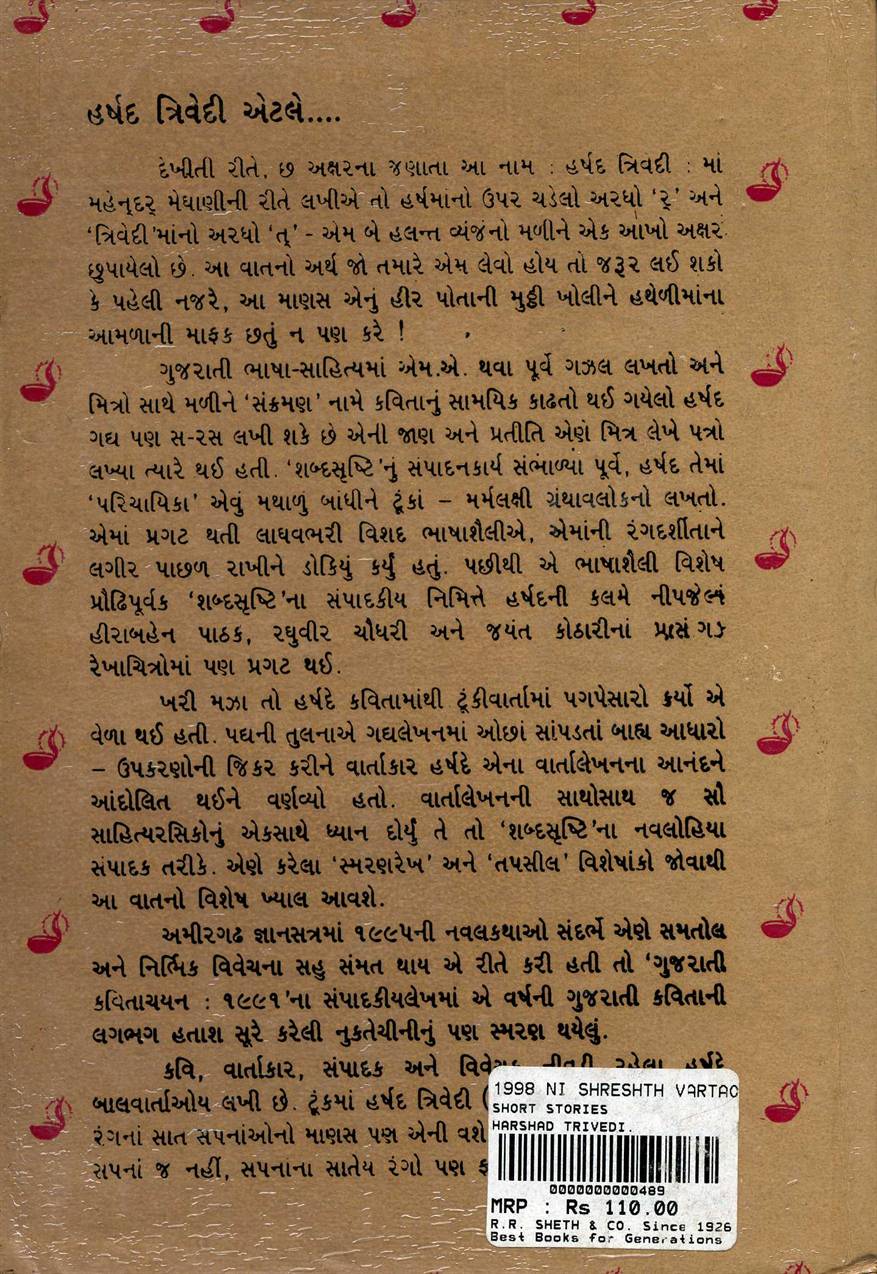 હર્ષદ ત્રિવેદી એટલે....
દેખીતી રીતે, છ અક્ષરના જણાતા આ નામ : હર્ષદ ત્રિવદી : માં
મહેન્દર્ મેઘાણીની રીતે લખીએ તો હર્ષમાંનો ઉપર ચડેલો અરધો ‘ર્’ અને
‘ત્રિવેદી’માંનો અરધો ‘ત્’ - એમ બે હલન્ત વ્યંજનો મળીને એક આખો અક્ષર
છુપાયેલો છે. આ વાતનો અર્થ જો તમારે એમ લેવો હોય તો જરૂર લઈ શકો
કે પહેલી નજરે, આ માણસ એનું હીર પોતાની મુઠ્ઠી ખોલીને હથેળીમાંના
આમળાની માફક છતું ન પણ કરે !
ગુજરાતી ભાષા-સાહિત્યમાં એમ.એ. થવા પૂર્વે ગઝલ લખતો અને
મિત્રો સાથે મળીને ‘સંક્રમણ’ નામે કવિતાનું સામયિક કાઢતો થઈ ગયેલો હર્ષદ
ગદ્ય પણ સ-રસ લખી શકે છે એની જાણ અને પ્રતીતિ એણે મિત્ર લેખે પત્રો
લખ્યા ત્યારે થઈ હતી. ‘શબ્દસૃષ્ટિ’નું સંપાદનકાર્ય સંભાળ્યા પૂર્વે, હર્ષદ તેમાં
‘પરિચાયિકા’ એવું મથાળું બાંધીને ટૂંકાં – મર્મલક્ષી ગ્રંથાવલોકનો લખતો.
એમાં પ્રગટ થતી લાઘવભરી વિશદ ભાષાશૈલીએ, એમાંની રંગદર્શીતાને
લગીર પાછળ રાખીને ડોકિયું કર્યું હતું. પછીથી એ ભાષાશૈલી વિશેષ
પ્રૌઢિપૂર્વક ‘શબ્દસૃષ્ટિ’ના સંપાદકીય નિમિત્તે હર્ષદની કલમે નીપજેલાં
હીરાબહેન પાઠક, રઘુવીર ચૌધરી અને જયંત કોઠારીનાં
રેખાચિત્રોમાં પણ પ્રગટ થઈ.
ખરી મઝા તો હર્ષદે કવિતામાંથી ટૂંકીવાર્તામાં પગપેસારો કર્યો એ
વેળા થઈ હતી. પદ્યની તુલનાએ ગદ્યલેખનમાં ઓછાં સાંપડતાં બાહ્ય આધારો
– ઉપકરણોની જિકર કરીને વાર્તાકાર હર્ષદે એના વાર્તાલેખનના આનંદને
આંદોલિત થઈને વર્ણવ્યો હતો. વાર્તાલેખનની સાથોસાથ જ સૌ
સાહિત્યરસિકોનું એકસાથે ધ્યાન દોર્યું તે તો ‘શબ્દસૃષ્ટિ’ના નવલોહિયા
સંપાદક તરીકે. એણે કરેલા ‘સ્મરણરેખ’ અને ‘તપસીલ’ વિશેષાંકો જોવાથી
આ વાતનો વિશેષ ખ્યાલ આવશે.
અમીરગઢ જ્ઞાનસત્રમાં ૧૯૯૫ની નવલકથાઓ સંદર્ભે એણે સમતોલ
અને નિર્ભિક વિવેચના સહુ સંમત થાય એ રીતે કરી હતી તો ‘ગુજરાતી
કવિતાચયન : ૧૯૯૧’ના સંપાદકીયલેખમાં એ વર્ષની ગુજરાતી કવિતાની
લગભગ હતાશ સૂરે કરેલી નુકતેચીનીનું પણ સ્મરણ થયેલું.
કવિ, વાર્તાકાર, સંપાદક અને
બાલવાર્તાઓય લખી છે. ટૂંકમાં હર્ષદ ત્રિવેદી (
રંગનાં સાત સપનાંઓનો માણસ પણ એની વશે
સપનાં જ નહીં, સપનાના સાતેય રંગો પણ
1998 NI SHRESHTH VARTAO
SHORT STORIES
HARSHAD TRIVEDI.
0000000000489
MRP : Rs 110.00
R.R. SHETH & CO. Since 1926
Best Books for Generations